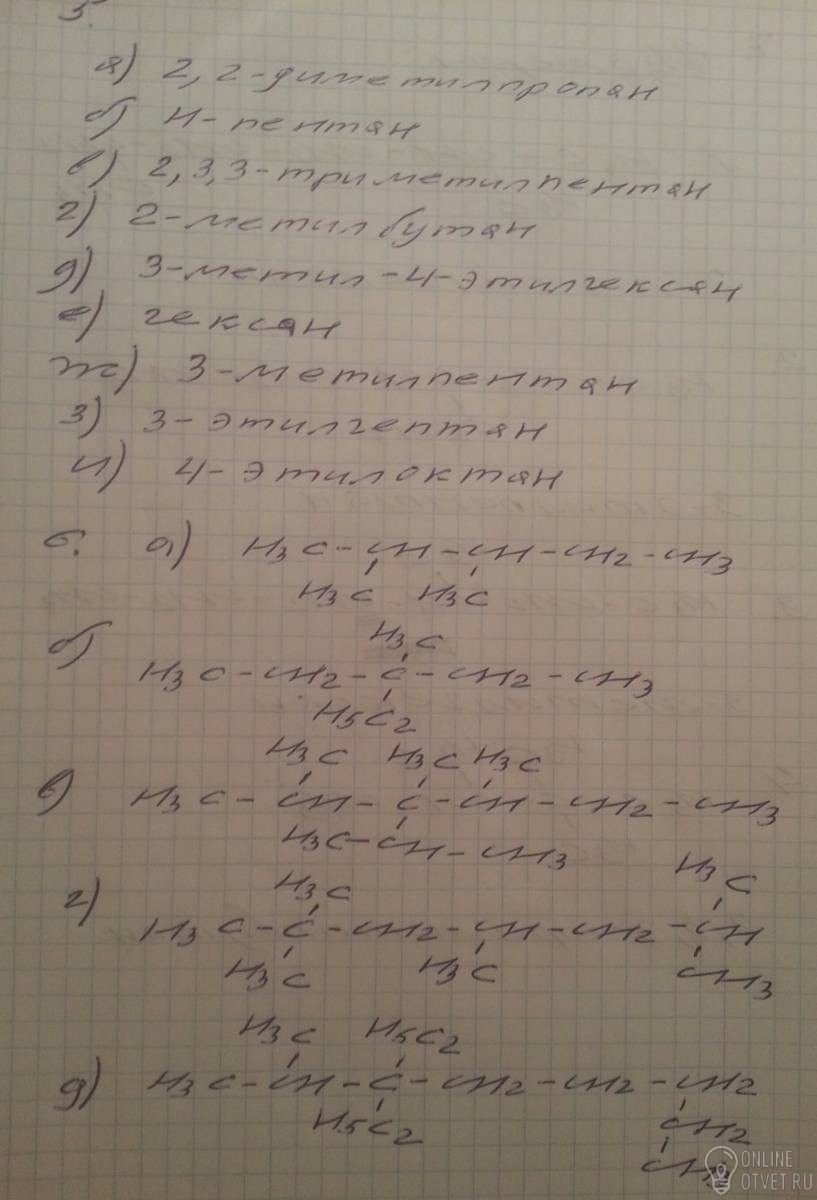 5.
а) 2,2-диметилпропан
б) н-пентан
в) 2,3,3-триметилпентан
г) 2-метилбутан
д) 3-метил-4-этилгексан
е) гексан
ж) 3-метилпентан
з) 3-этилгептан
и) 4-этилоктан
6. а) H3C-CH-CH-CH2-CH3
H3C H3C
H3C
б) H3C-CH2-C-CH2-CH3
H5C2
H3C H3C H3C
в) H3C-CH-C-CH-CH2-CH3
H3C-CH-CH3
H3C H3C
г) H3C-C-CH2-CH-CH2-CH
H3C H3C CH3
H3C H5C2
д) H3C-CH-C-CH2-CH2-CH2
H5C2 CH2
CH3
ONLINE
OTVET.RU